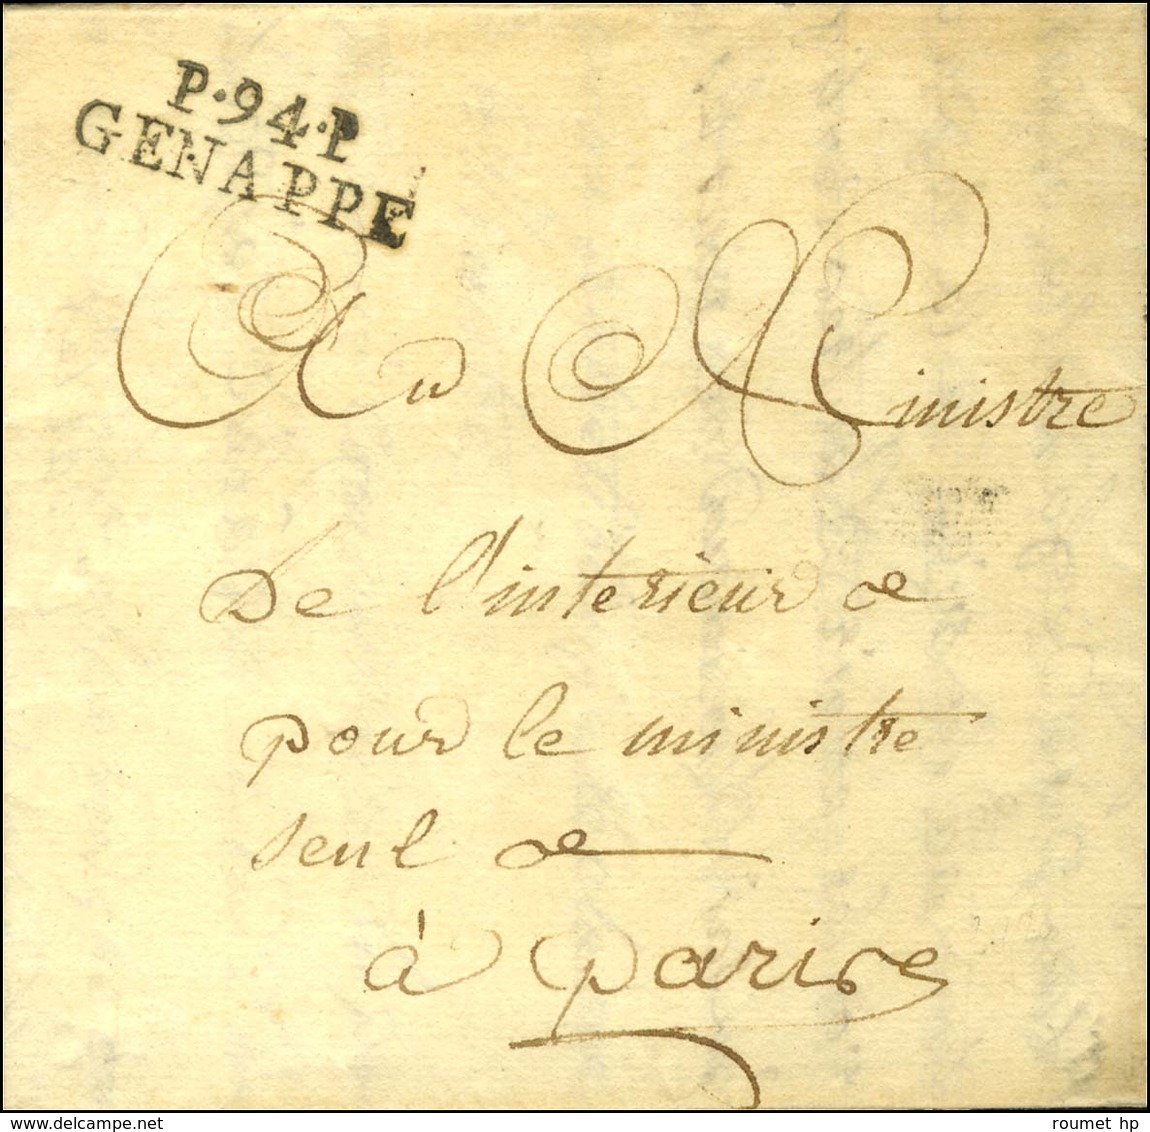 P.94.P
GENAPPE
Au Ministre
De l'interieur
pour le ministre
seul
à paris
roumet hp